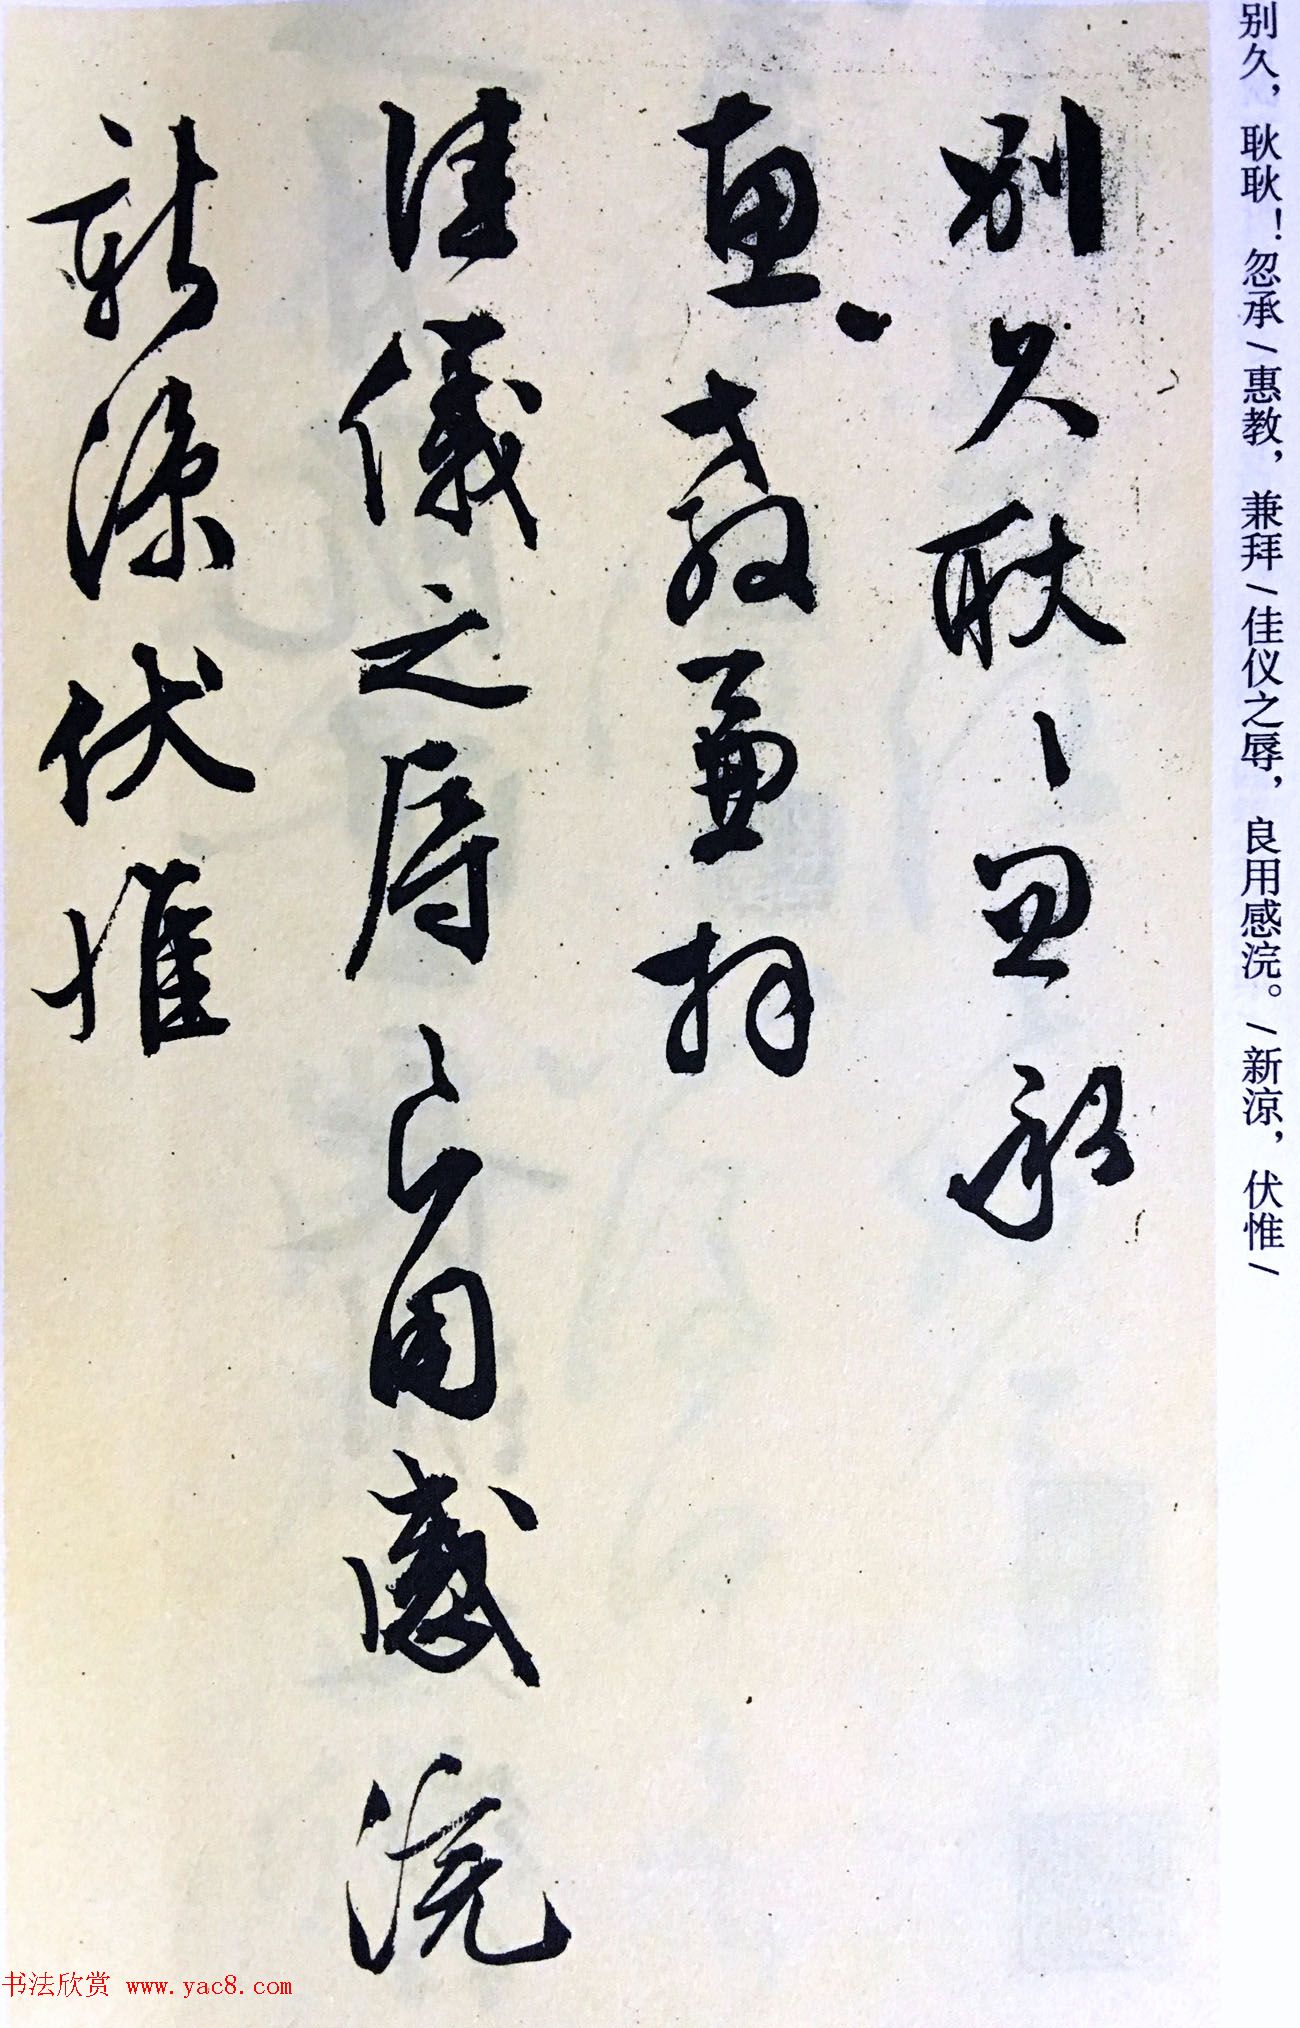 别久，耿耿！忽承/惠教，兼拜/佳仪之辱，良用感浣。/新凉，伏惟/
别久耿〻忽承
惠教兼拜
佳儀之辱良用感浣
新凉伏惟
书法欣赏 www.yac8.com